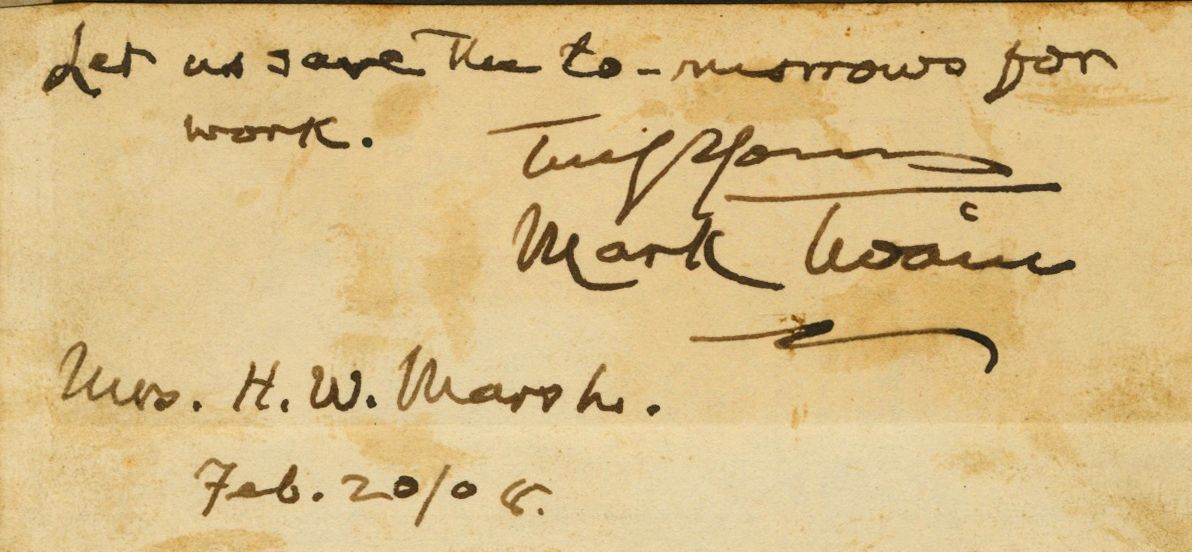 Let us save the to-morrows for
work.
Truly Yours
Mark Twain
Mrs. H. W. Marsh.
Feb. 20/08.